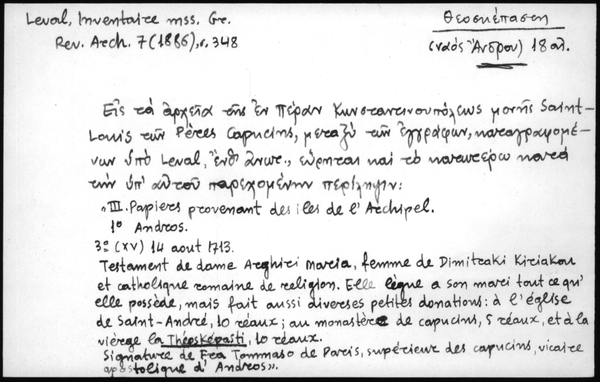 Leval, Inventaire mss. Gr.
Rev. Arch. 7 (1886), σ. 348
Θεοσκέπαστη
(ναός Ἄνδρου) 18 αἰ.
Εἰς τὰ ἀρχεῖα τῆς ἐν Πέραν Κωνσταντινουπόλεως μονῆς Saint-
Louis τῶν Pères Capucins, μεταξὺ τῶν ἐγγράφων, καταγραφομέ-
νων ὑπὸ Leval, ἔνθ' ἄνωτ., εὕρηται καὶ τὸ κατωτέρω κατὰ
τὴν ὑπ' αὐτοῦ παρεχομένην περίληψιν:
"III. Papiers provenant des iles de l'Archipel.
1º Andros.
3º (XV) 14 aout 1713.
Testament de dame Arghiri Marcia, femme de Dimitraki Kiriakou
et catholique romaine de religion. Elle lègue a son mari tout ce qu'
elle possède, mais fait aussi diverses petites donations: à l'église
de Saint-André, 10 réaux; au monastère de capucins, 5 réaux, et à la
vièrge la Théosképasti, 10 réaux.
Signature de Fra Tommaso de Paris, supérieur des capucins, vicaire
apostolique d'Andros».